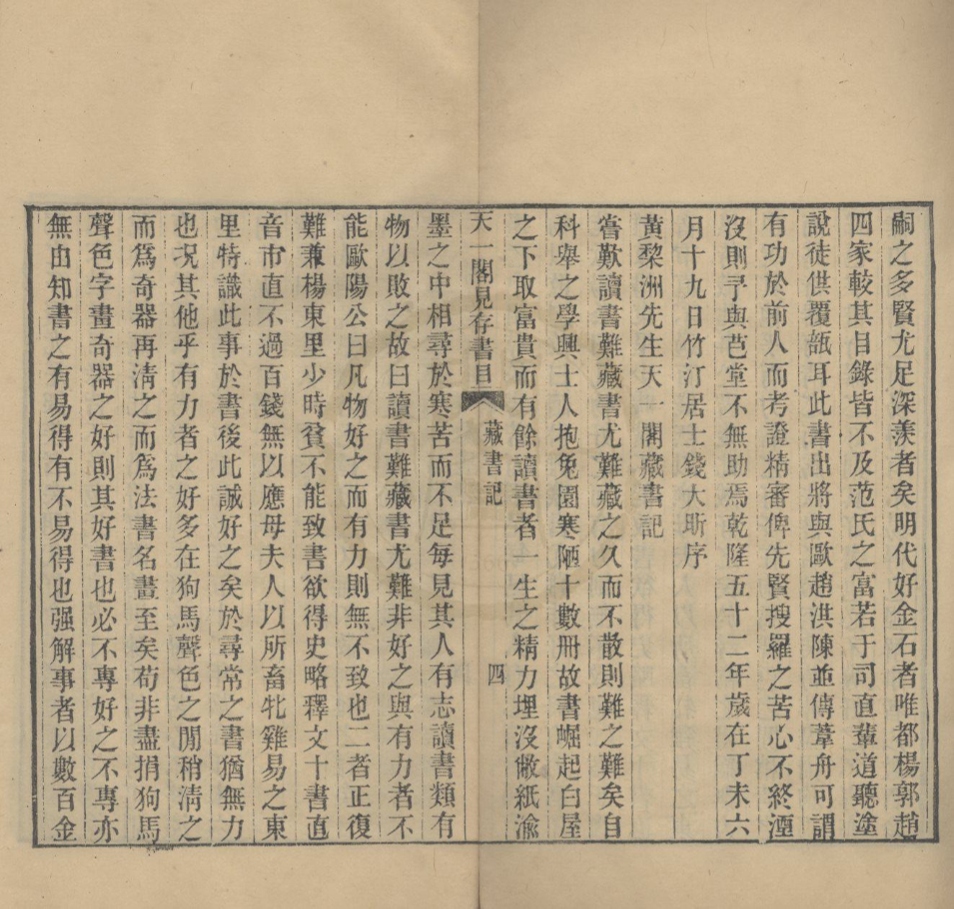 嗣之多賢尤足深羨者矣明代好金石者唯都楊郭趙
四家較其目錄皆不及范氏之富若于司直輩道聽塗
說徒供覆瓿耳此書出將與歐趙洪陳並傳葦舟可謂
有功於前人而考證精審俾先賢搜羅之苦心不終湮
沒則予與芑堂不無助焉乾隆五十二年歲在丁未六
月十九日竹汀居士錢大昕序
黃黎洲先生天一閣藏書記
嘗歎讀書難藏書尤難藏之久而不散則難之難矣自
科舉之學興士人抱兔園寒陋十數冊故書崛起白屋
之下取富貴而有餘讀書者一生之精力埋沒敝紙渝
天一閣見存書目
藏書記
四
墨之中相尋於寒苦而不足每見其人有志讀書類有
物以敗之故曰讀書難藏書尤難非好之與有力者不
能歐陽公曰凡物好之而有力則無不致也二者正復
難兼楊東里少時貧不能致書欲得史略釋文十書直
音市直不過百錢無以應母夫人以所畜牝雞易之東
里特識此事於書後此誠好之矣於尋常之書猶無力
也況其他乎有力者之好多在狗馬聲色之閒稍淸之
而爲奇器再淸之而爲法書名畫至矣苟非盡捐狗馬
聲色字畫奇器之好則其好書也必不專好之不專亦
無由知書之有易得有不易得也强解事者以數百金